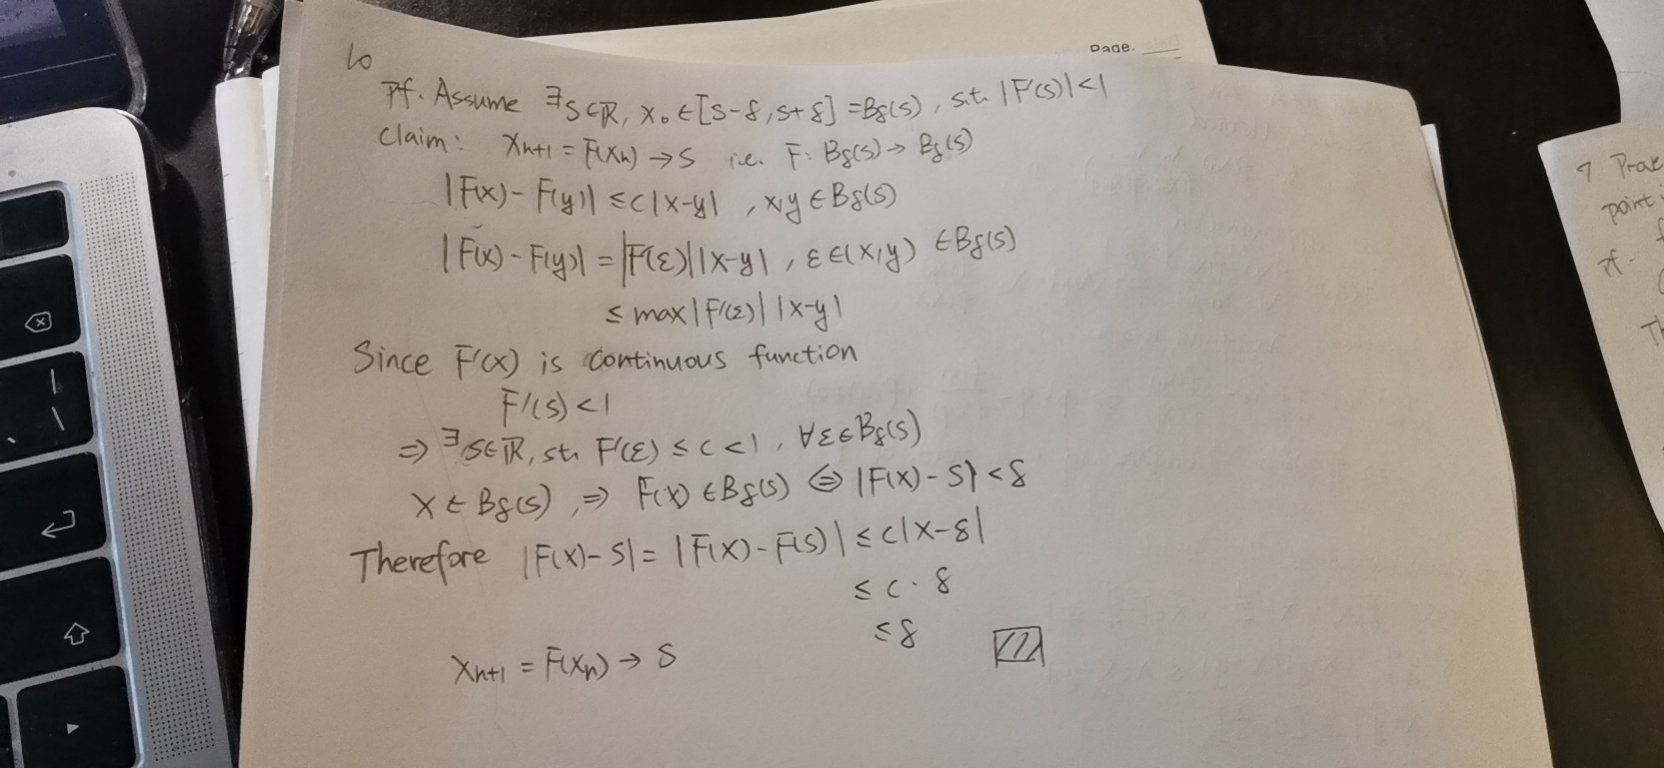 10
Page.
Pf. Assume ∃s∈ℝ, x₀ ∈ [s-δ, s+δ] = Bδ(s), s.t. |F'(s)|<1
Claim: Xn+1 = F(Xn) → S i.e. F: Bδ(s) → Bδ(s)
|F(x) - F(y)| ≤ c|x-y| , x,y ∈ Bδ(s)
|F(x) - F(y)| = |F'(ε)||x-y| , ε ∈ (x,y) ∈ Bδ(s)
≤ max|F'(ε)| |x-y|
Since F'(x) is continuous function
F'(s) < 1
⇒ ∃δ∈ℝ, st. F'(ε) ≤ c < 1 , ∀ε∈Bδ(s)
X ∈ Bδ(s) , ⇒ F(x) ∈ Bδ(s) ⇔ |F(x) - S| < δ
Therefore |F(x) - S| = |F(x) - F(s)| ≤ c|x-δ|
≤ c · δ
≤ δ
Xn+1 = F(Xn) → S
7 Prove
point
pf.